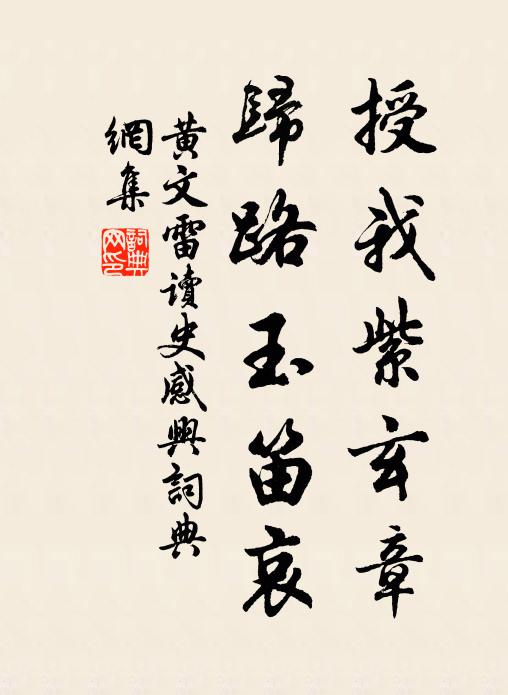 授我紫玄章
歸路玉笛哀
黃文雷讀史感興詞典
網集
詞典
网印